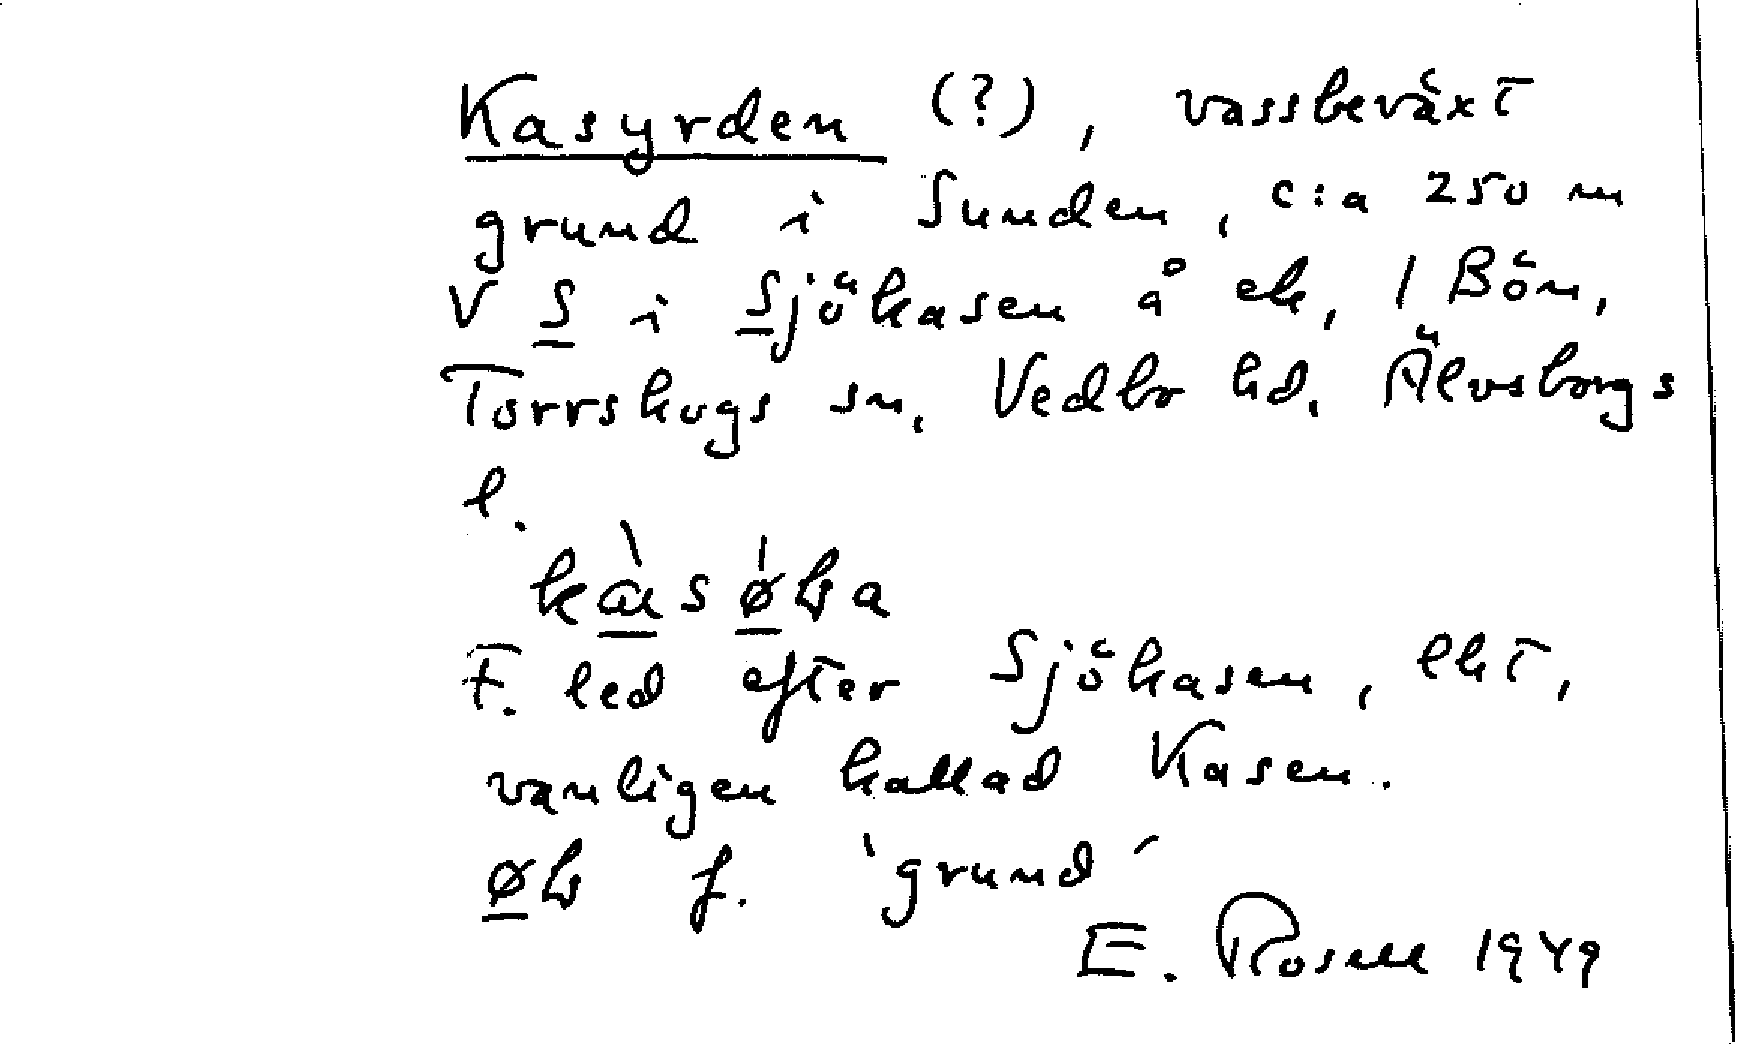 Kasyrden (?), vassbeväxt
grund i Sunden, c:a 250 m
V S i Sjökasen å ek, 1 Bön,
Torrskogs sn, Vedbo hd, Älvsborgs
l.
F. led efter Sjökasen, lht,
vanligen kallad Kasen.
f. 'grund'
E. Rosell 1949